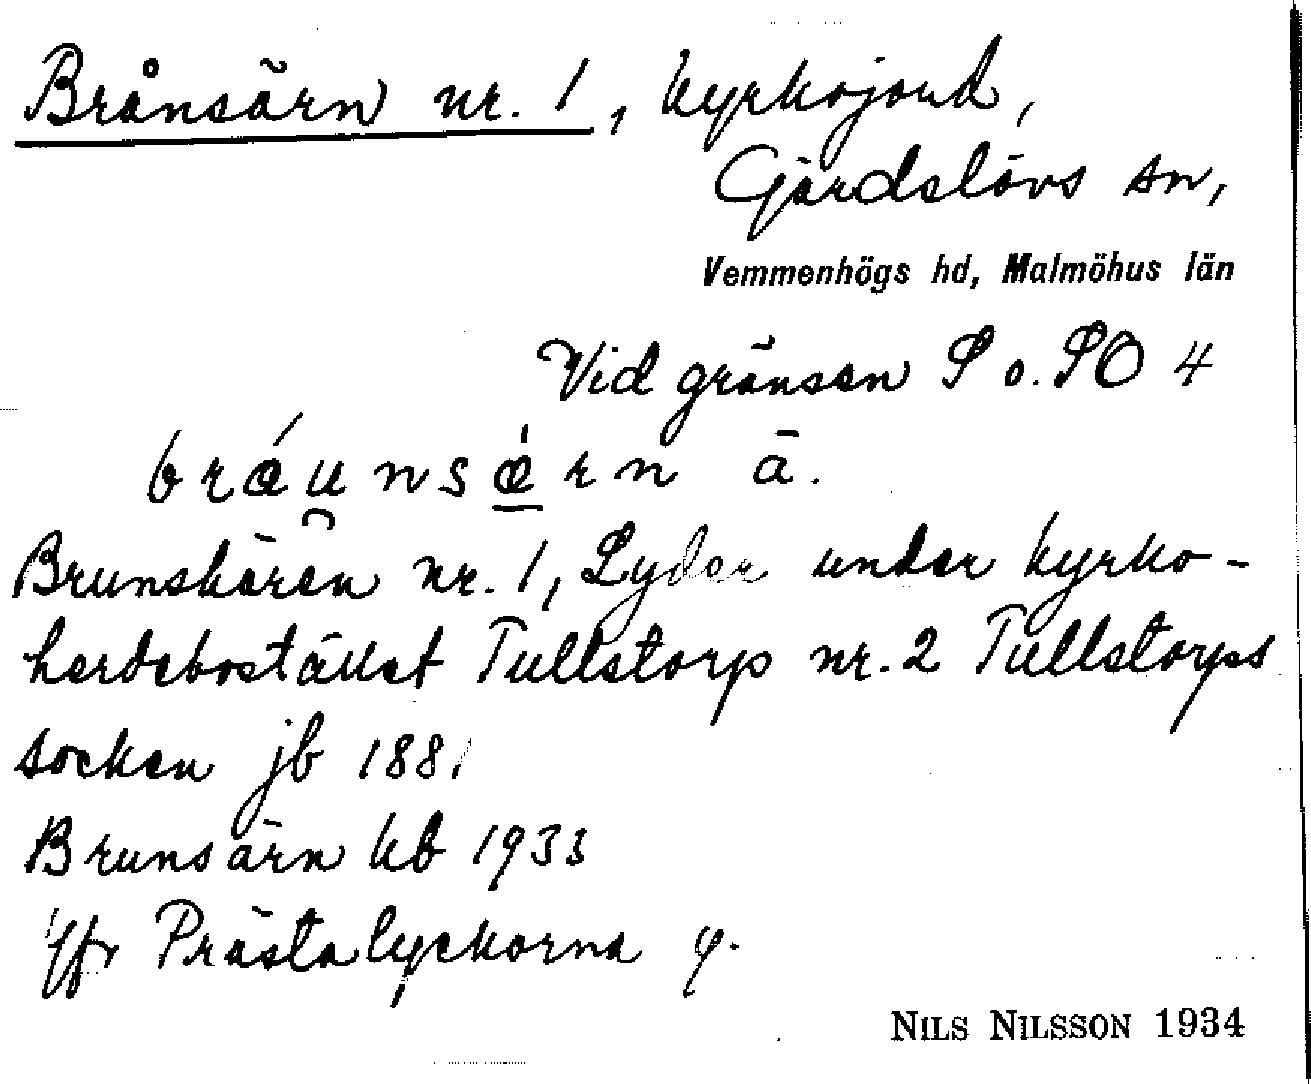 Brånsärn nr. 1, kyrkojord,
Gärdslövs sn,
Vemmenhögs hd, Malmöhus län
Vid gränsen S o. SO 4
bráu̯nsæ̠̍rn ä.
Brunskären nr. 1, Lyder under kyrko-
herdebostället Tullstorp nr. 2 Tullstorps
socken jb 1881
Brunsärn kb 1933
Jfr Prästalyckorna y.
NILS NILSSON 1934